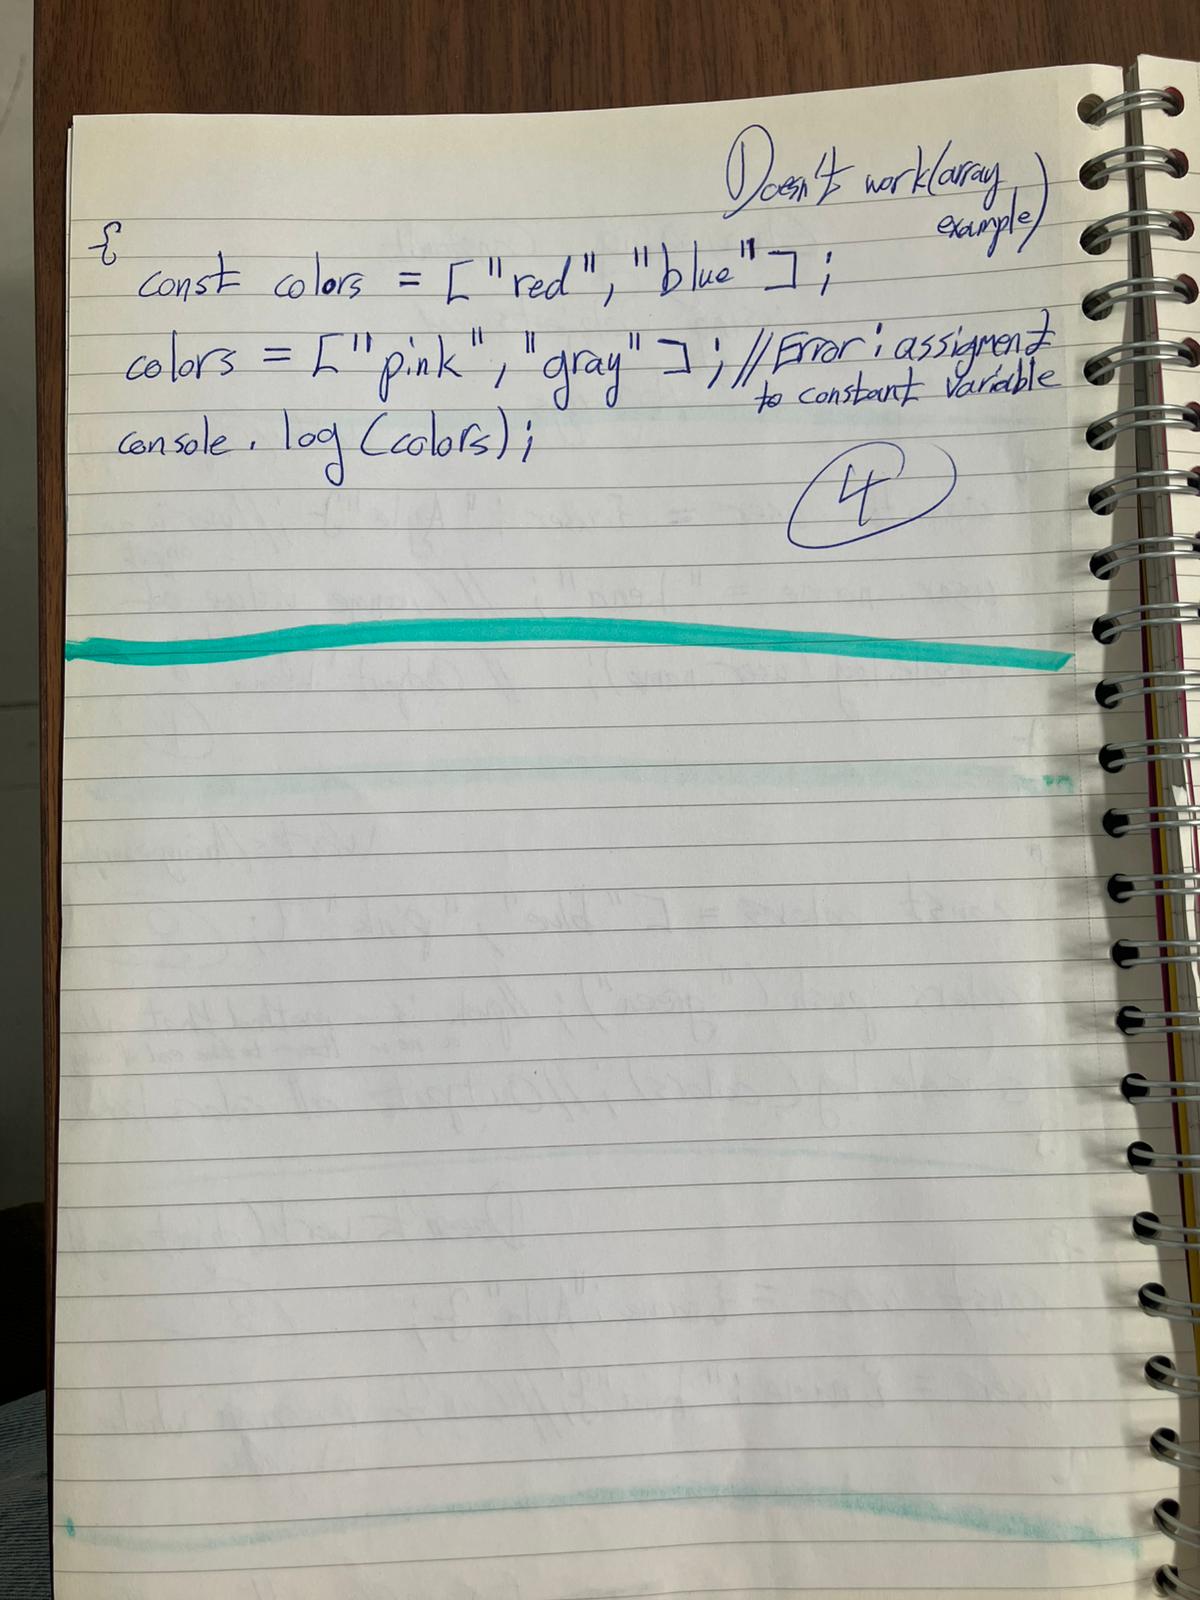 Doesn't work(array
example)
{
const colors = ["red", "blue"];
colors = ["pink", "gray"]; //Error: assigment
to constant variable
console.log(colors);
4